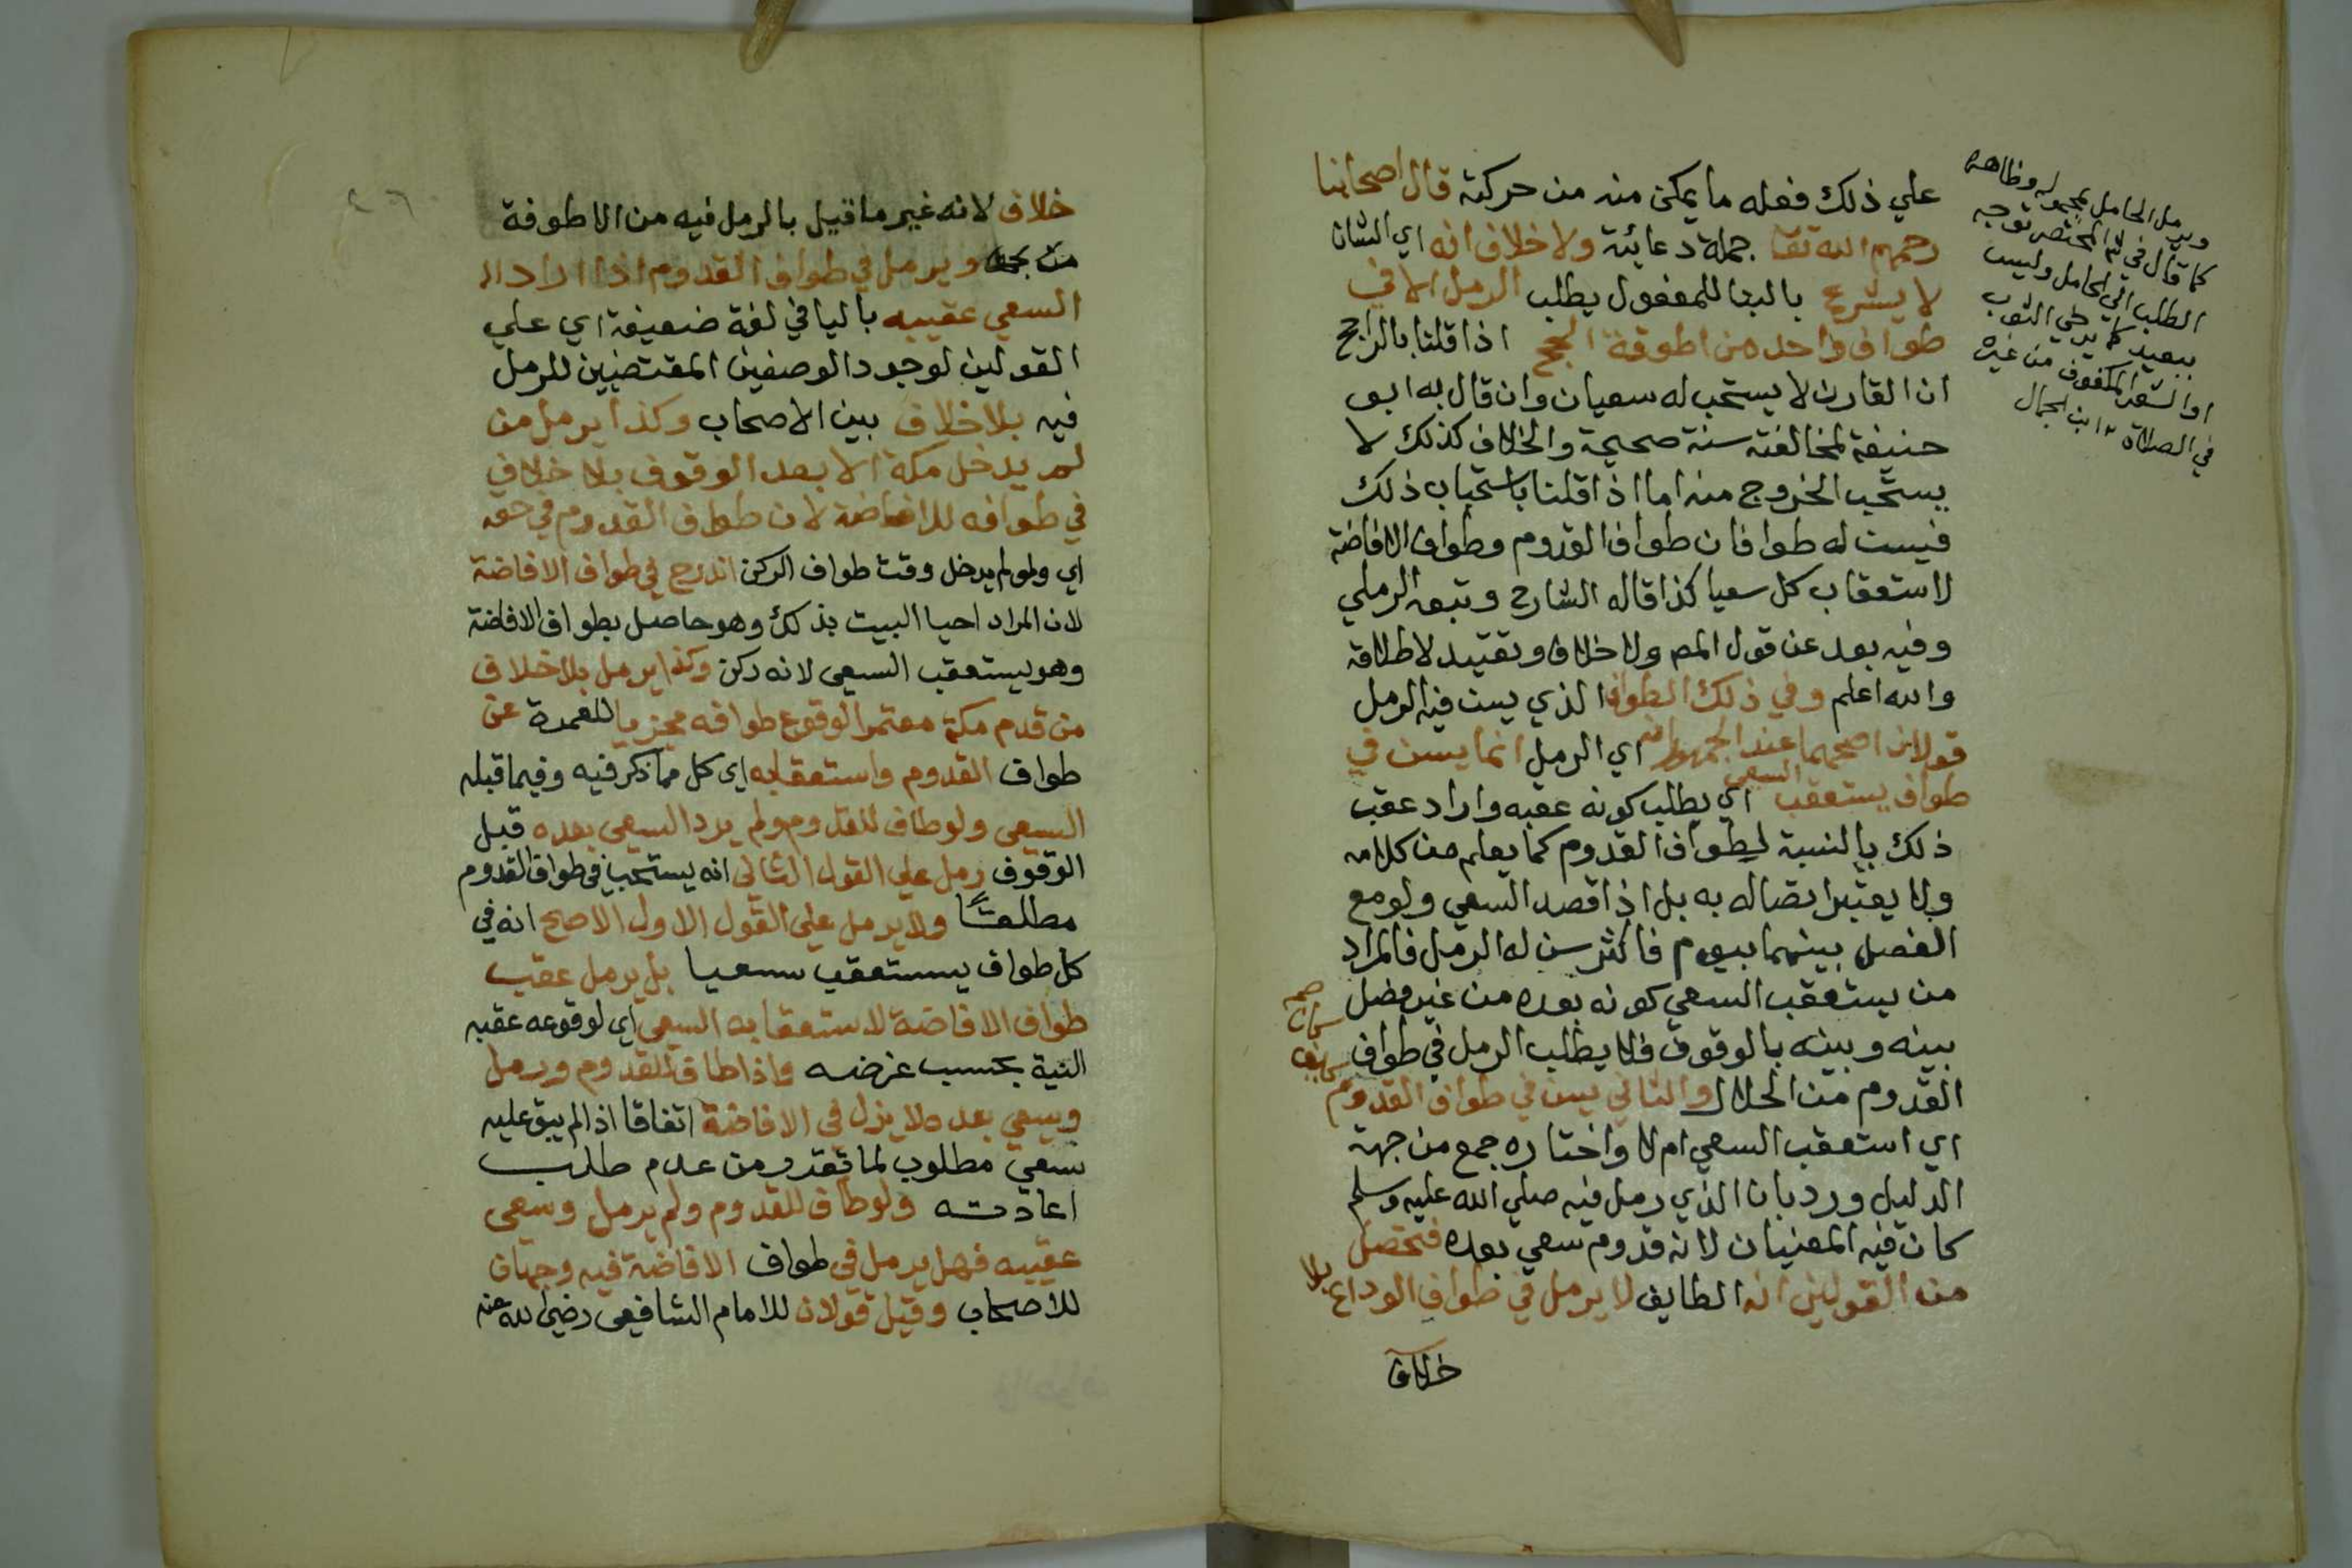 علي ذلك ففعله ما يمكن منه من حركته قال اصحابنا
رحمهم الله تعا جملة دعائية ولا خلاف انه اي الشان
لا يشرع بالبنا للمفعول يطلب الرمل الا في
طواف واحد من اطوفة الحج اذا قلنا بالراجح
ان القارن لا يستحب له سعيان وان قال به ابو
حنيفة لمخالفته سنة صحيحة والخلاف كذلك لا
يستحب الخروج منه اما اذا قلنا باستحباب ذلك
فيسن له طوافان طواف القدوم وطواف الافاضة
لاستعقاب كل سعيا كذا قاله الشارح وتبعه الرملي
وفيه بعد عن قول المص ولا خلاف وتقييد لاطلاقه
والله اعلم وفي ذلك الطواف الذي يسن فيه الرمل
قولان اصحهما عند الجمهور انه اي الرمل انما يسن في
طواف يستعقب السعي اي يطلب كونه عقبه واراد عقب
ذلك بالنسبة لطواف القدوم كما يعلم من كلامه
ولا يعتبر اتصاله به بل اذا قصد السعي ولو مع
الفصل بينهما بيوم فاكثر سن له الرمل فالمراد
من يستعقب السعي كونه بعده من غير فصل
بينه وبينه بالوقوف فلا يطلب الرمل في طواف
القدوم من الحلال والثاني يسن في طواف القدوم
اي استعقب السعي ام لا واختاره جمع من جهة
الدليل ورد بان الذي رمل فيه صلي الله عليه وسلم
كان فيه المعنيان لانه قدوم سعي بعده فتحصل
من القولين انه الطايف لا يرمل في طواف الوداع بلا
خلاف
ويرمل الحامل بمحموله وظاهره
كما قال في المختصر توجه
الطلب الي الحامل وليس
ببعيد كما يرخي الثوب
او الشعر المكفوف من غيره
في الصلاة ابن الجمال
خلاف لانه غير ما قيل بالرمل فيه من الاطوفة
ويرمل في طواف القدوم اذا اراد
السعي عقيبه باليا في لغة ضعيفة اي علي
القولين لوجود الوصفين المقتضيين للرمل
فيه بلا خلاف بين الاصحاب وكذا يرمل من
لم يدخل مكة الا بعد الوقوف بلا خلاف
في طوافه للافاضة لان طواف القدوم في حقه
اي ولو لم يدخل وقت طواف الركن اندرج في طواف الافاضة
لان المراد احيا البيت بذلك وهو حاصل بطواف الافاضة
وهو يستعقب السعي لانه ركن وكذا يرمل بلا خلاف
من قدم مكة معتمرا لوقوع طوافه مجزيا للعمرة عن
طواف القدوم واستعقابه اي كل مما ذكر فيه وفيما قبله
السعي ولو طاف للقدوم ولم يرد السعي بعده قبل
الوقوف رمل علي القول الثاني انه يستحب في طواف القدوم
مطلقا ولا يرمل علي القول الاول الاصح انه في
كل طواف يستعقب سعيا بل يرمل عقب
طواف الافاضة لاستعقابه السعي اي لوقوعه عقبه
النية بحسب غرضه واذا طاف للقدوم ورمل
وسعي بعده لا يزل في الافاضة اتفاقا اذ لم يبق عليه
سعي مطلوب لما تقدر من عدم طلب
اعادته ولو طاف للقدوم ولم يرمل وسعي
عقيبه فهل يرمل في طواف الافاضة فيه وجهان
للاصحاب وقيل قولان للامام الشافعي رضي الله عنه